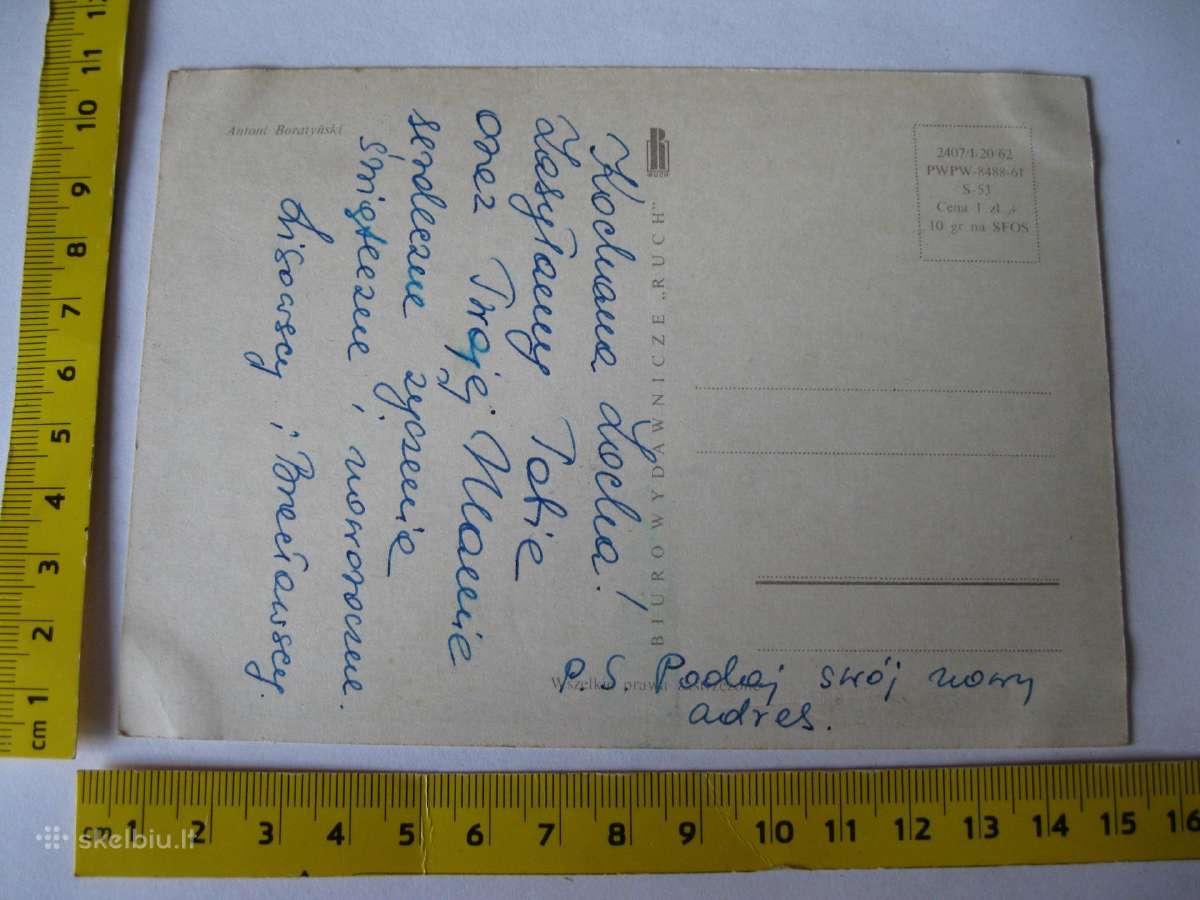 Antoni Boratyński
Kochana Locha!
Zasyłamy Tobie
oraz Twojej Mamie
serdeczne życzenia
świąteczne i noworoczne.
Lisowscy i Bracławscy.
P.S. Podaj swój nowy
adres.
RUCH
BIURO WYDAWNICZE „RUCH"
Wszelkie prawa zastrzeżone
2407/I/20/62
PWPW-8488-61
S-53
Cena 1 zł +
10 gr na SFOS
cm 1 2 3 4 5 6 7 8 9 10 11 12
cm 1 2 3 4 5 6 7 8 9 10 11 12 13 14 15 16
skelbiu.lt